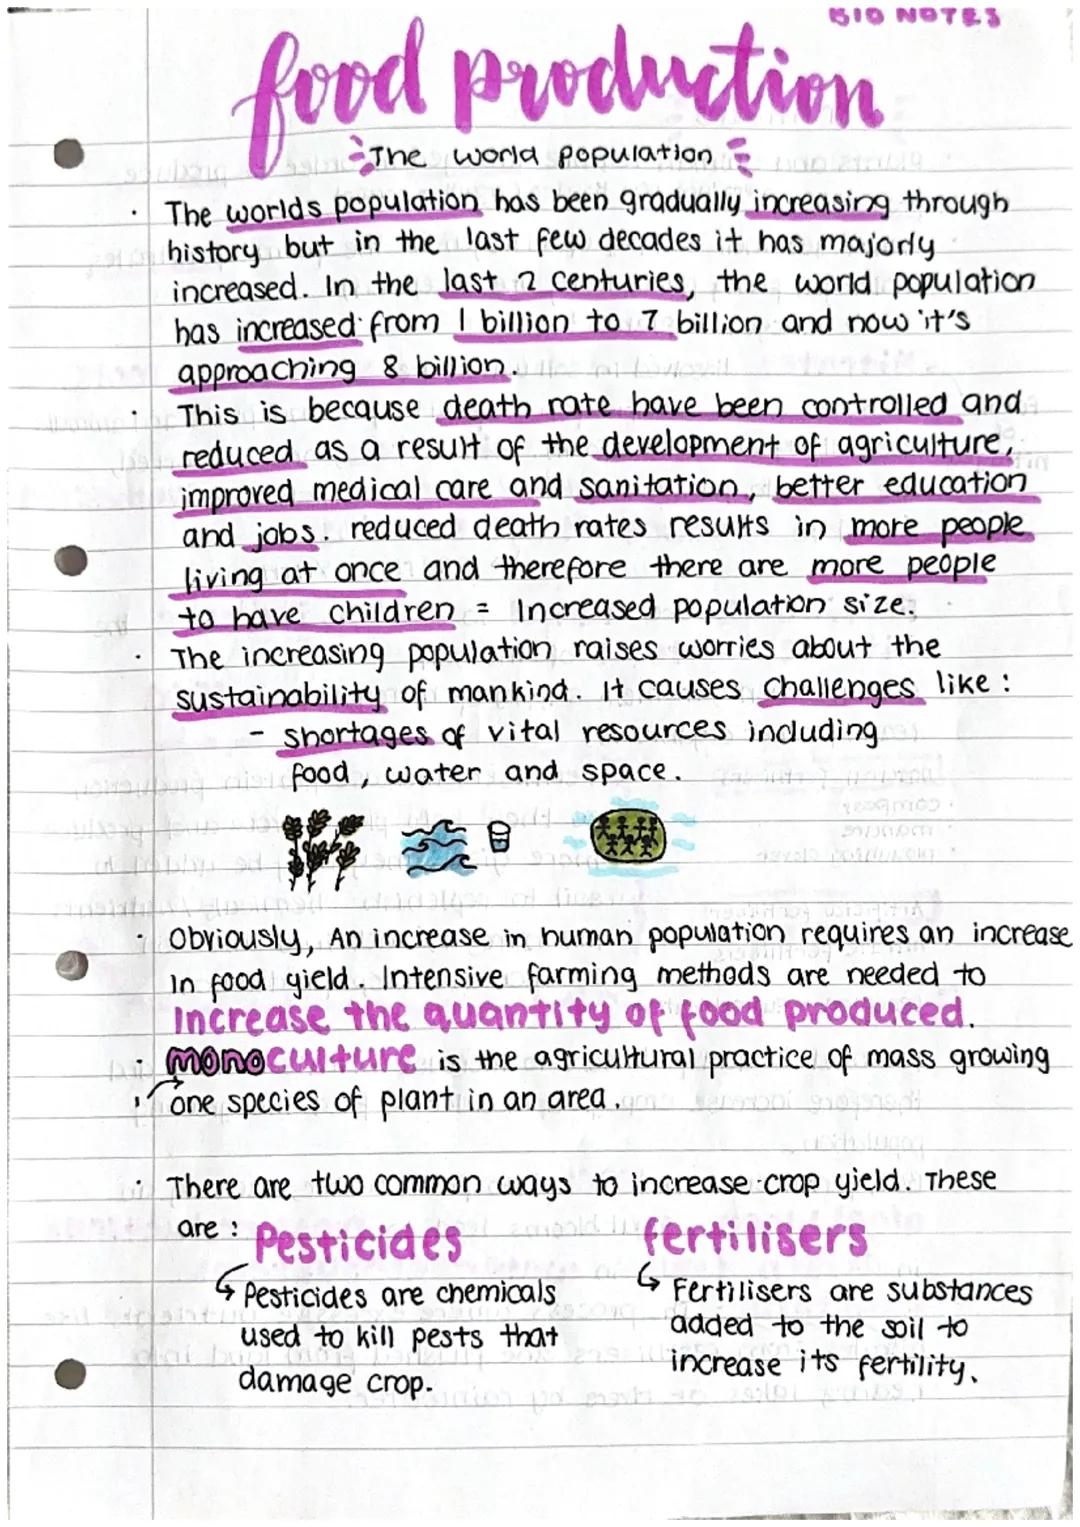 BIO NOTES
food production
The world population
The worlds population has been gradually increasing through
history but in the last few decades it has majorly
increased. In the last 2 centuries, the world population
has increased from 1 billion to 7 billion and now it's
approaching 8 billion.
This is because death rate have been controlled and
reduced as a result of the development of agriculture,
improved medical care and sanitation, better education
and jobs. reduced death rates results in more people
living at once and therefore there are more people
to have children = Increased population size.
The increasing population raises worries about the
sustainability of mankind. It causes challenges like :
- shortages of vital resources including
food, water and space.
Obviously, An increase in human population requires an increase
in food yield. Intensive farming methods are needed to
increase the quantity of food produced.
monoculture is the agricultural practice of mass growing
one species of plant in an area.
There are two common ways to increase crop yield. These
are : Pesticides fertilisers
Pesticides are chemicals
used to kill pests that
damage crop.
Fertilisers are substances
added to the soil to
increase its fertility.